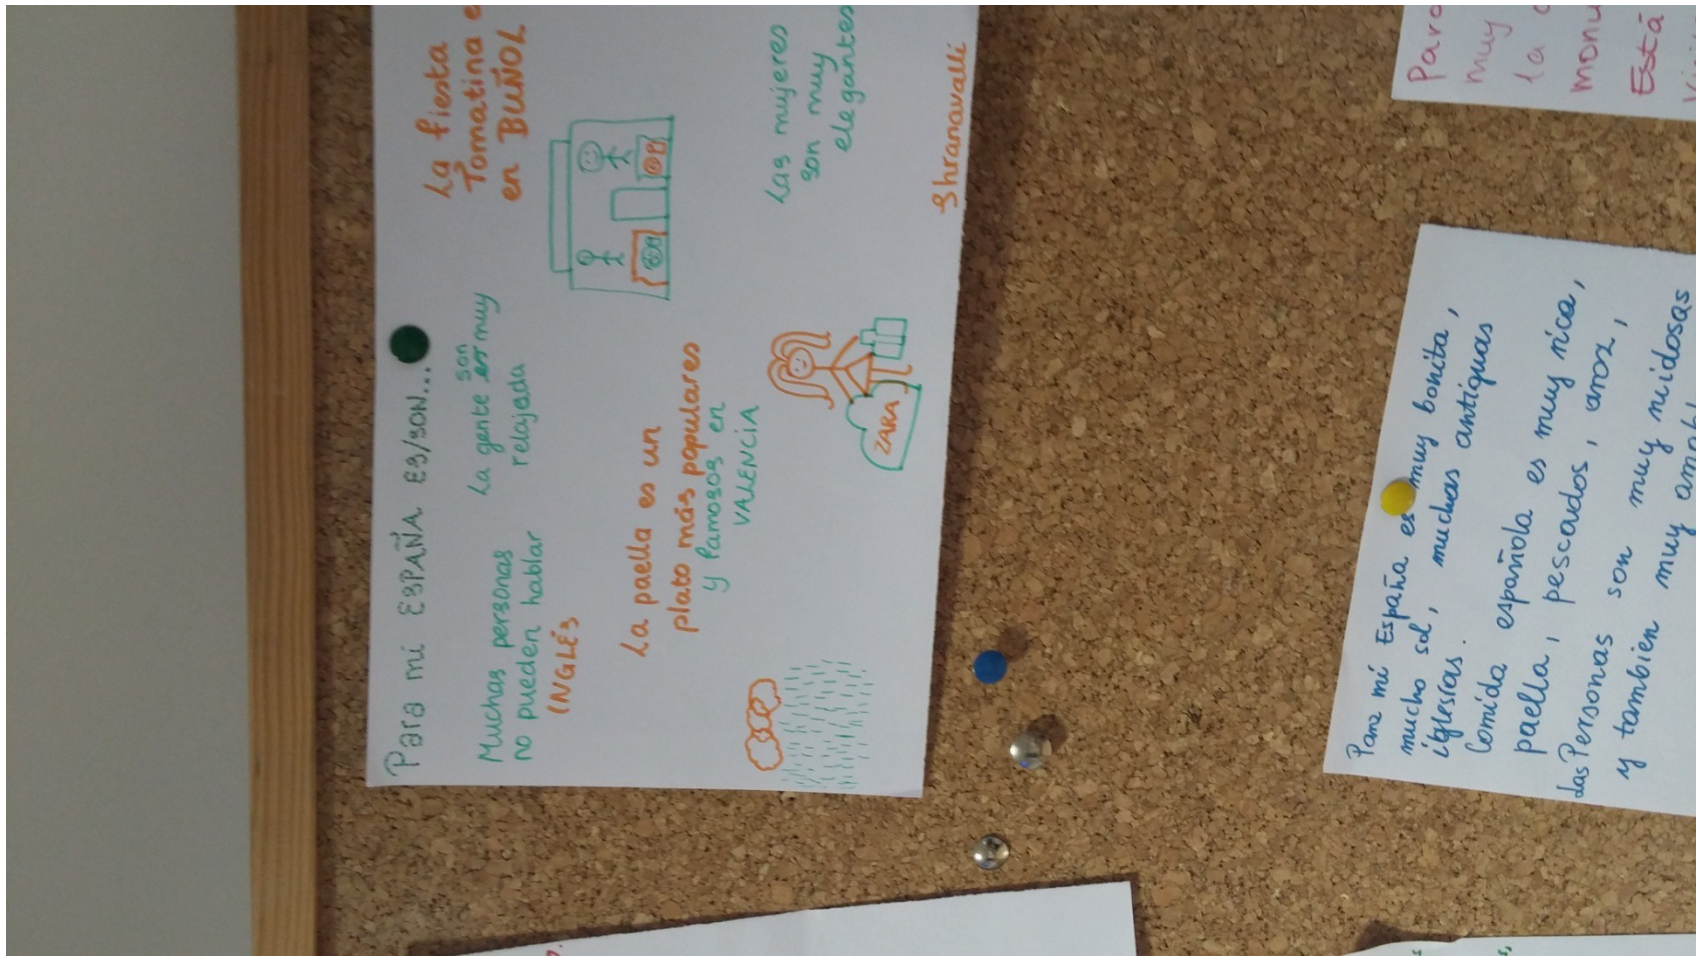 Para mi ESPAÑA ES/SON...
Muchas personas
no pueden hablar
INGLÉS
La gente son muy
relajada
La fiesta
Tomatina e
en BUÑOL
La paella es un
plato más populares
y famosos en
VALENCIA
ZARA
Las mujeres
son muy
elegantes
Shranavalli
Para mi España es muy bonita,
mucho sol, muchas antiguas
iglesias.
Comida española es muy rica,
paella, pescados, arroz,
Las Personas son muy ruidosas
y tambien muy amabl
Para
muy
la
monu
Está